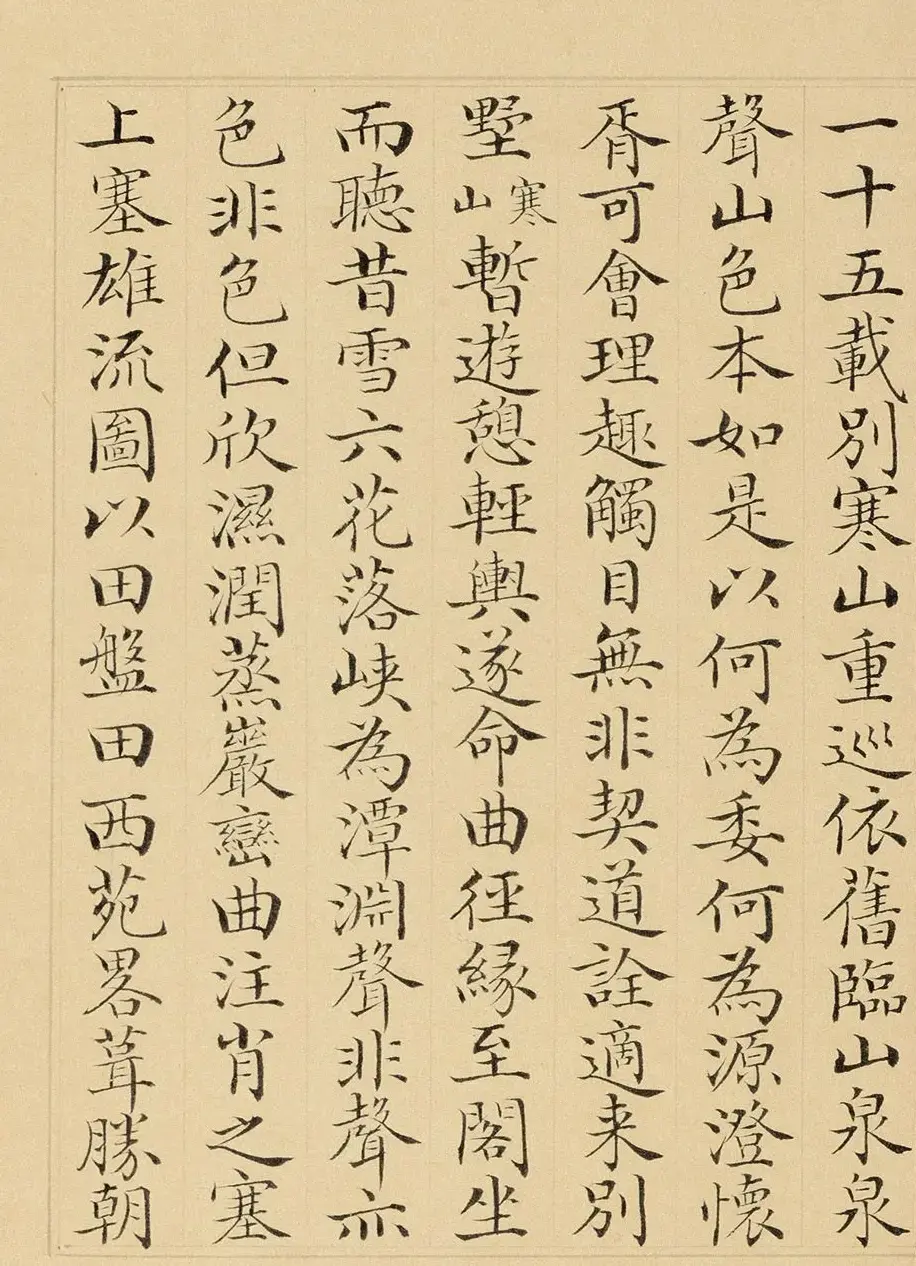 一十五載別寒山重巡依舊臨山泉泉
聲山色本如是以何為委何為源澄懷
胥可會理趣觸目無非契道詮適来別
墅寒山暫遊憩輕輿遂命曲徑緣至閣坐
而聽昔雪六花落峽為潭淵聲非聲亦
色非色但欣濕潤蒸巖巒曲注肖之塞
上塞雄流圖以田盤田西苑畧葺勝朝